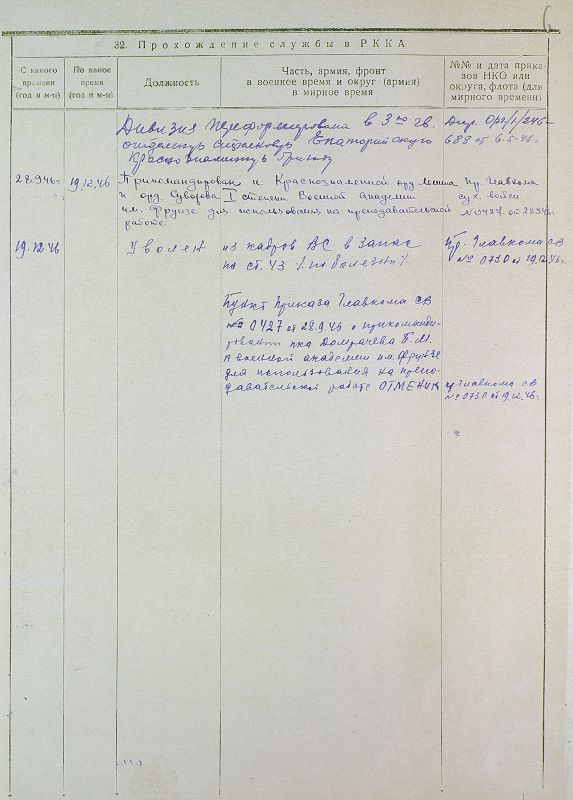 6
32. Прохождение службы в РККА
С какого времени (год и м-ц)
По какое время (год и м-ц)
Должность
Часть, армия, фронт в военное время и округ (армия) в мирное время
№№ и дата приказов НКО или округа, флота (для мирного времени)
Дивизия переформирована в 3ю гв.
отдельную стрелковую Евпаторийскую
Краснознаменную бригаду
Дир. Орг/1/246
688 от 6.5.46г.
28.9.46г.
19.12.46
Прикомандирован к Краснознаменной орд. Ленина
и орд. Суворова I степени Военной Академии
им. Фрунзе для использования на преподавательской
работе
Пр. Главкома
сух. войск
№ 0427 от 28.9.46
19.12.46
Уволен
из кадров ВС в запас
по ст. 43 /по болезни/
Пр. Главкома СВ
№ 0730 от 19.12.46г.
Пункт Приказа Главкома СВ
№ 0427 от 28.9.46 о прикомандировании
п-ка Домрачева П.М.
к военной академии им. Фрунзе
для использования на преподавательской
работе ОТМЕНИТЬ
пр. Главкома СВ
№ 0730 от 19.12.46г.